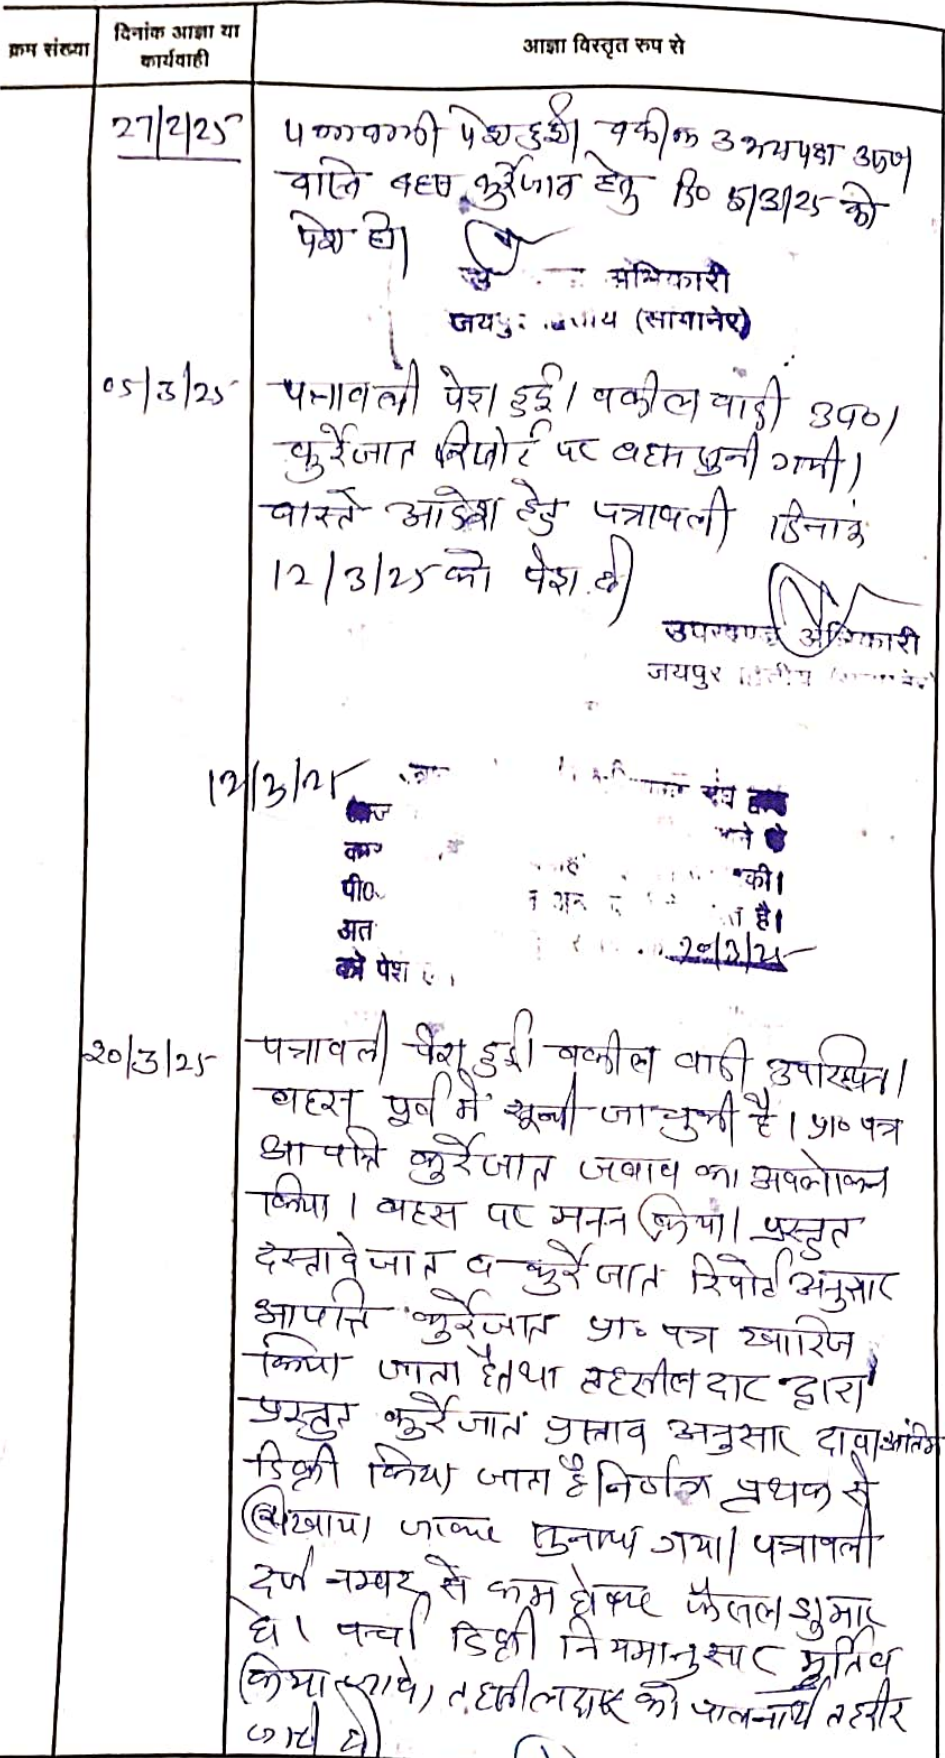 क्रम संख्या
दिनांक आज्ञा या
कार्यवाही
आज्ञा विस्तृत रुप से
27/2/25
पत्रावली पेश हुई। वकील उभयपक्ष उप०।
वास्ते बहस कुर्रेजात हेतु दि० 5/3/25 को
पेश हो।
अधिकारी
जयपुर (सांगानेर)
05/3/25
पत्रावली पेश हुई। वकील वादी उप०।
कुर्रेजात रिपोर्ट पर बहस सुनी गयी।
वास्ते आदेश हेतु पत्रावली दिनांक
12/3/25 को पेश हो।
उपखण्ड अधिकारी
जयपुर द्वितीय
12/3/25
की।
पी०
है।
अत
20/3/25
को पेश
20/3/25
पत्रावली पेश हुई। वकील वादी उपस्थित।
बहस पूर्व में सूनी जा चुकी है। प्रा० पत्र
आपत्ति कुर्रेजात जवाब का अवलोकन
किया। बहस पर मनन किया। प्रस्तुत
दस्तावेजात व कुर्रेजात रिपोर्ट अनुसार
आपत्ति कुर्रेजात प्रा० पत्र खारिज
किया जाता है तथा तहसीलदार द्वारा
प्रस्तुत कुर्रेजात प्रस्ताव अनुसार दावा अंतिम
डिक्री किया जाता है निर्णय पृथक से
लिखाया जाकर सुनाया गया। पत्रावली
दर्ज नम्बर से कम होकर फैसल शुमार
हो। पर्चा डिक्री नियमानुसार मुर्तिब
किया जावे। तहसीलदार को पालनार्थ तहरीर
जारी हो।